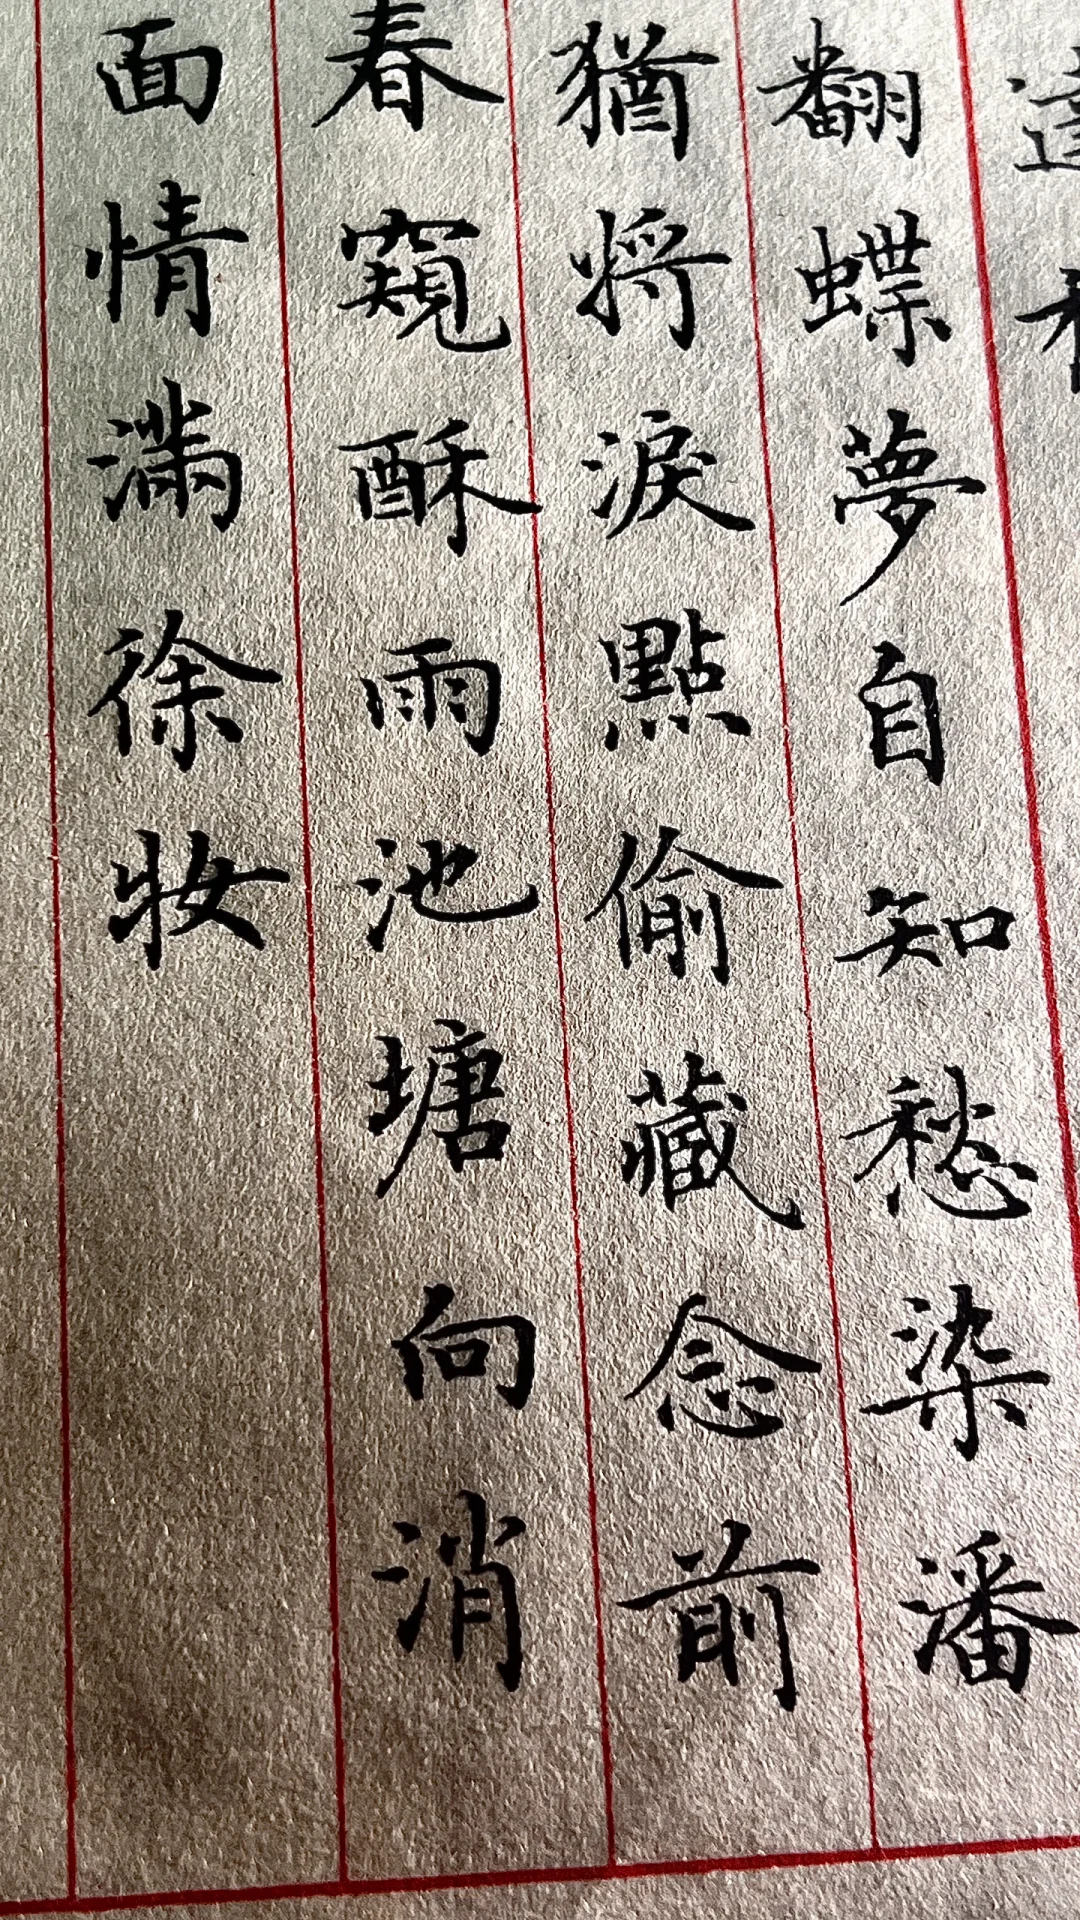 翻蝶夢自知愁染潘
猶將淚點偷藏念前
春窺酥雨池塘向消
面情滿徐妝